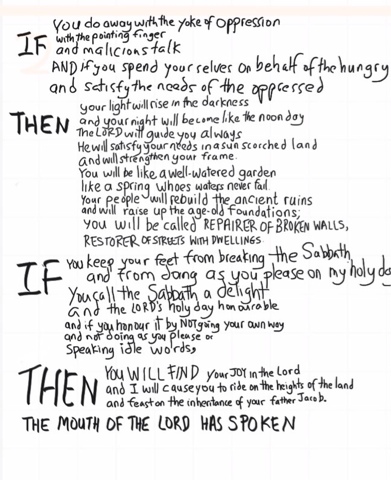 IF You do away with the yoke of oppression
with the pointing finger
and malicious talk
AND if you spend your selves on behalf of the hungry
and satisfy the needs of the oppressed
THEN your light will rise in the darkness
and your night will become like the noon day
The LORD will guide you always
He will satisfy your needs in a sun scorched land
and will strengthen your frame.
You will be like a well-watered garden
like a spring whoes waters never fail.
Your people will rebuild the ancient ruins
and will raise up the age-old foundations;
you will be called REPAIRER OF BROKEN WALLS,
RESTORER OF STREETS WITH DWELLINGS
IF you keep your feet from breaking the Sabbath
and from doing as you please on my holy da
You call the Sabbath a delight
and the LORD's holy day honourable
and if you honour it by NOT going your own way
and not doing as you please or
speaking idle words,
THEN YOU WILL FIND your JOY in the Lord
and I will cause you to ride on the heights of the land
and feast on the inheritance of your father Jacob.
THE MOUTH OF THE LORD HAS SPOKEN